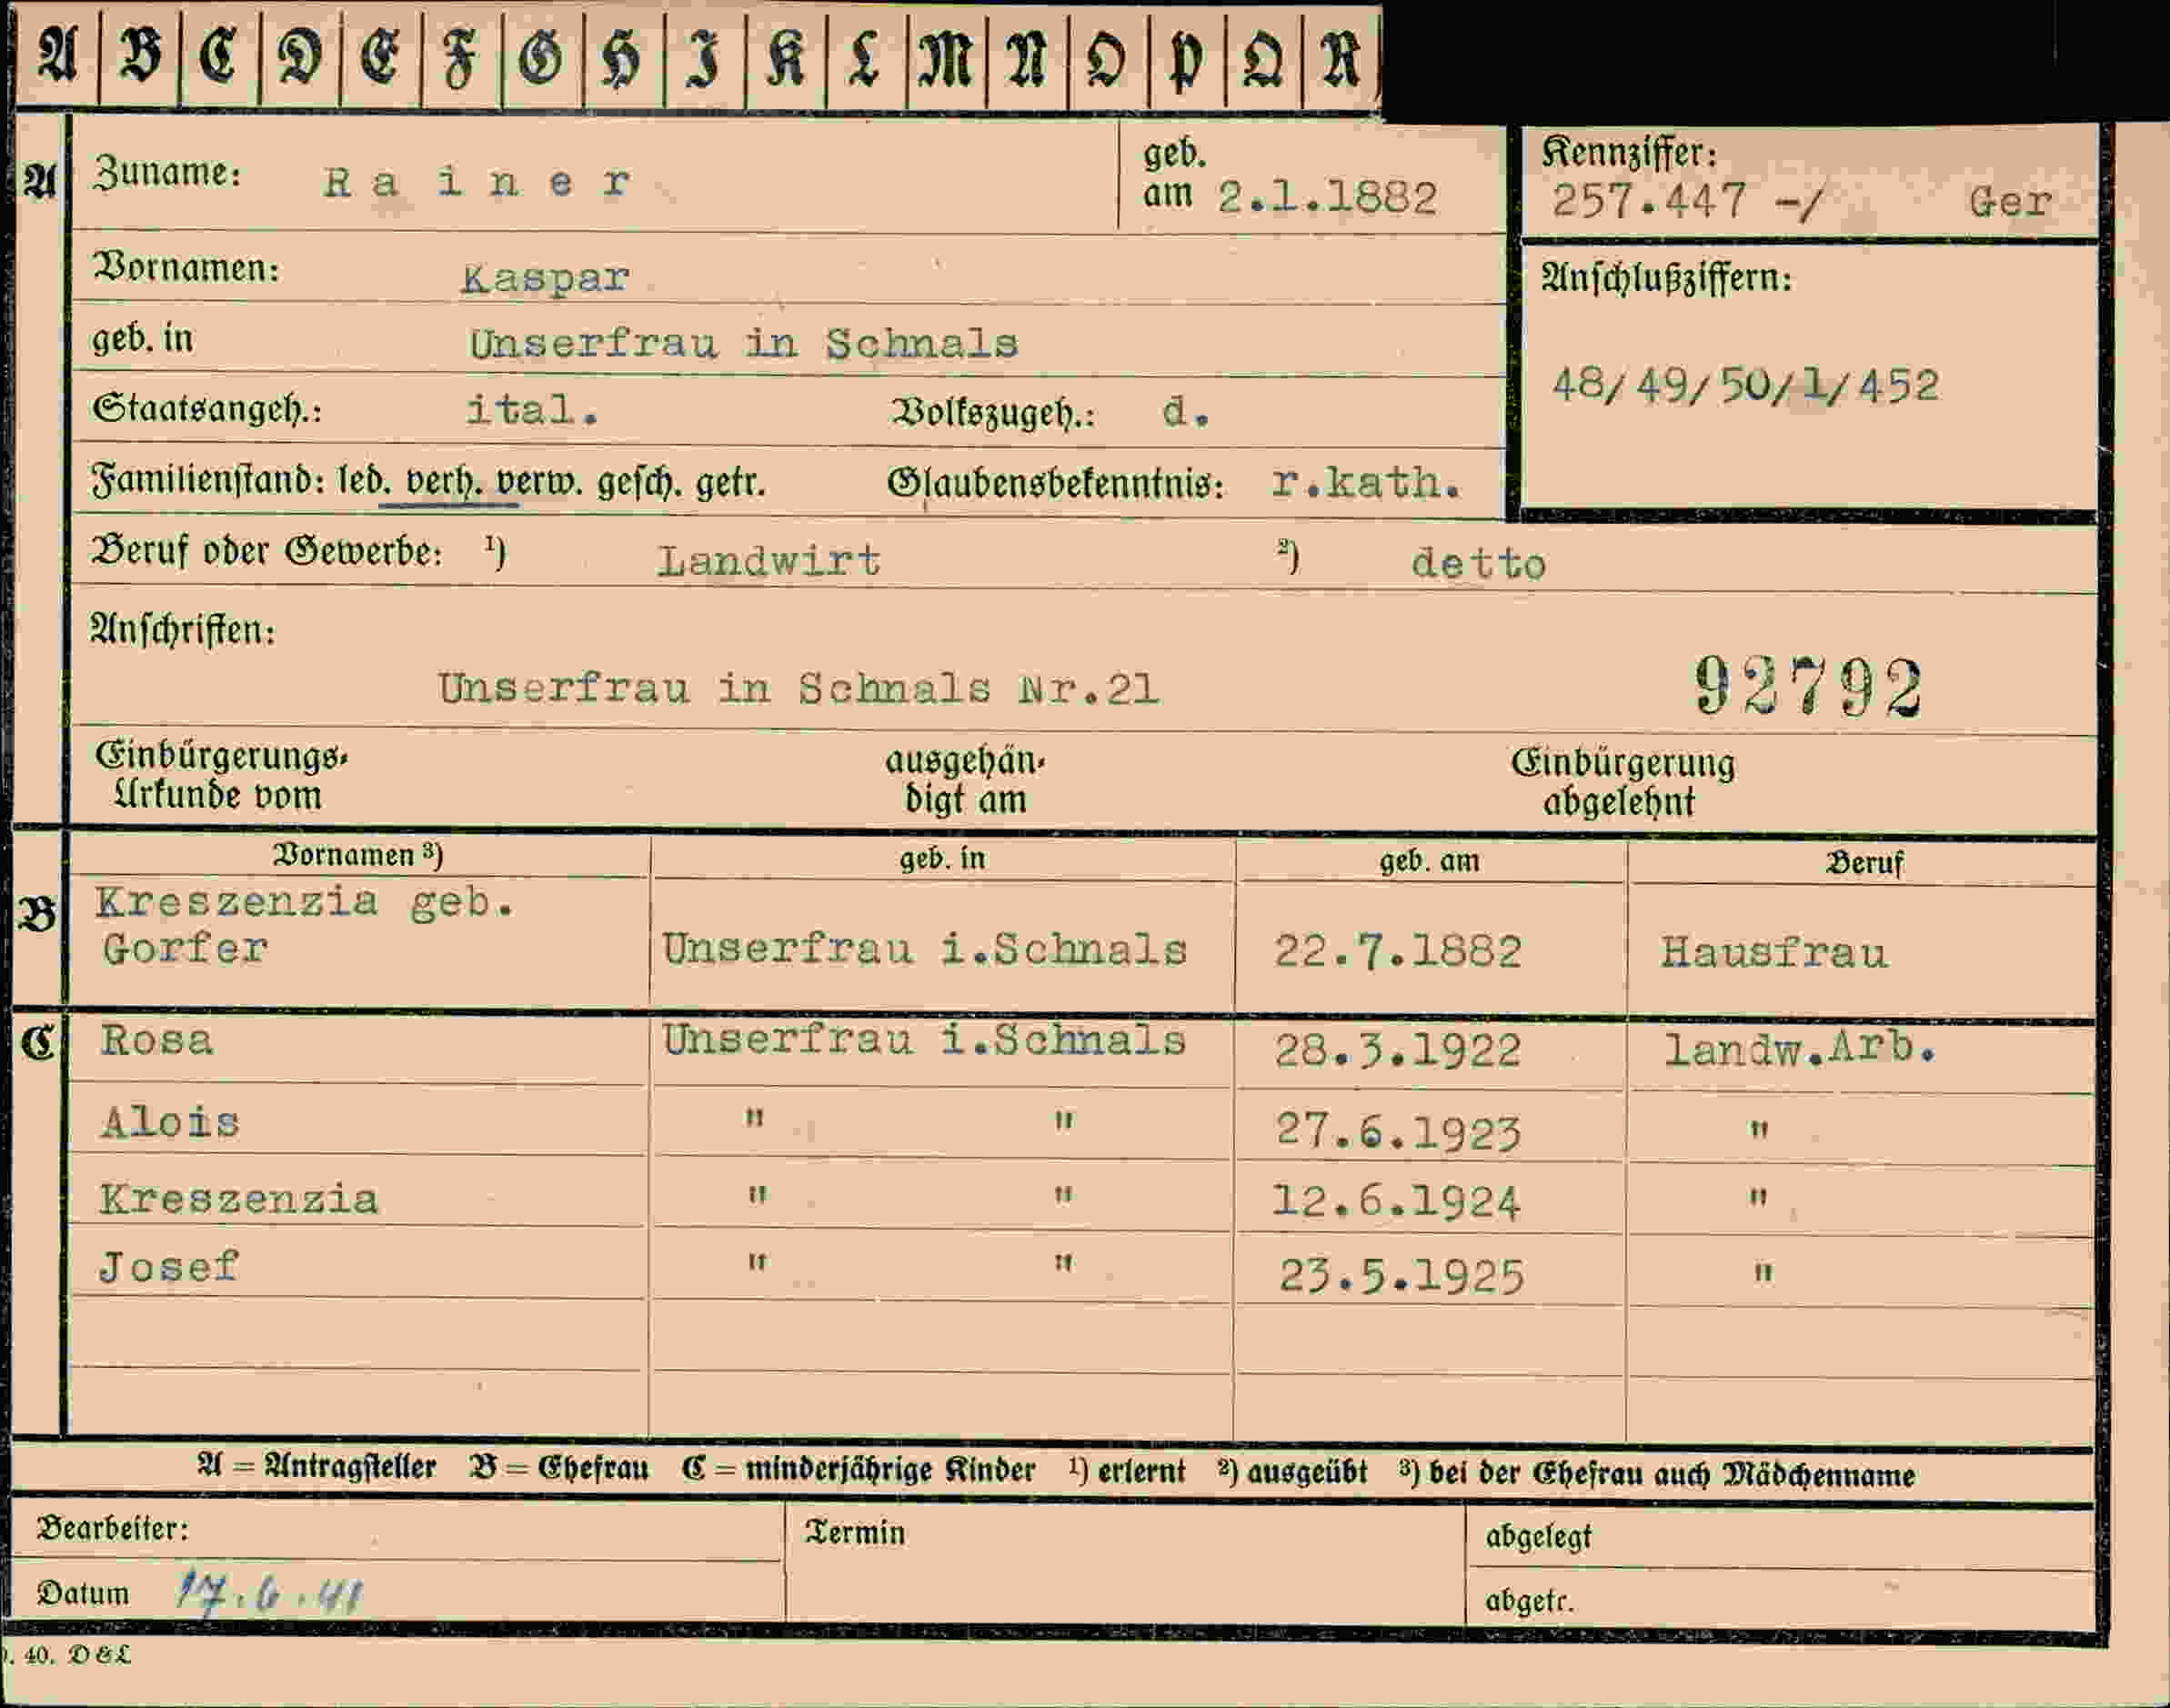 A B C D E F G H I K L M N O P Q R
A Zuname: Rainer geb. am 2.1.1882
Kennziffer:
257.447 -/ Ger
Vornamen: Kaspar
Anschlußziffern:
48/49/50/1/452
geb. in Unserfrau in Schnals
Staatsangeh.: ital. Volkszugeh.: d.
Familienstand: led. verh. verw. gesch. getr. Glaubensbekenntnis: r.kath.
Beruf oder Gewerbe: ¹) Landwirt ²) detto
Anschriften:
Unserfrau in Schnals Nr.21 92792
Einbürgerungs- ausgehän- Einbürgerung
Urkunde vom digt am abgelehnt
Vornamen ³) geb. in geb. am Beruf
B Kreszenzia geb.
Gorfer Unserfrau i.Schnals 22.7.1882 Hausfrau
C Rosa Unserfrau i.Schnals 28.3.1922 landw.Arb.
Alois " " 27.6.1923 "
Kreszenzia " " 12.6.1924 "
Josef " " 23.5.1925 "
A = Antragsteller B = Ehefrau C = minderjährige Kinder ¹) erlernt ²) ausgeübt ³) bei der Ehefrau auch Mädchenname
Bearbeiter: Termin abgelegt
Datum 17.6.41 abgetr.
. 40. D&L